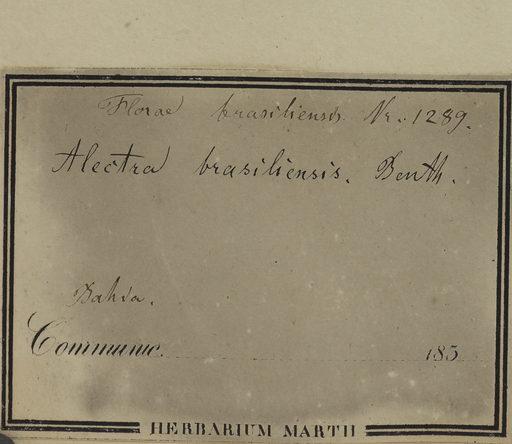 Florae brasiliensis Nr. 1289.
Alectra brasiliensis. Benth.
Bahia.
Communic. 185
HERBARIUM MARTII